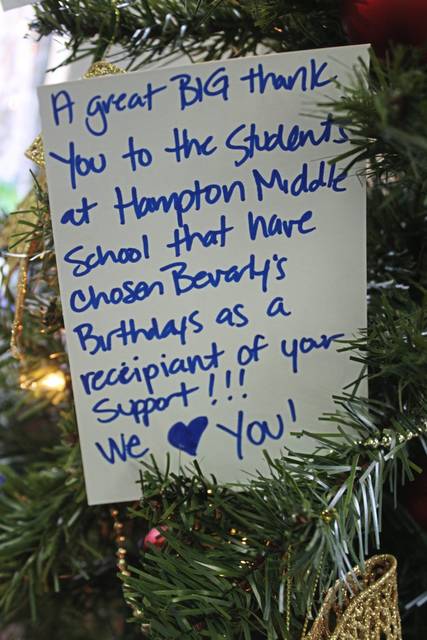 A great BIG thank
You to the Students
at Hampton Middle
School that have
chosen Beverly's
Birthdays as a
receipiant of your
Support!!!
We ♥ You!